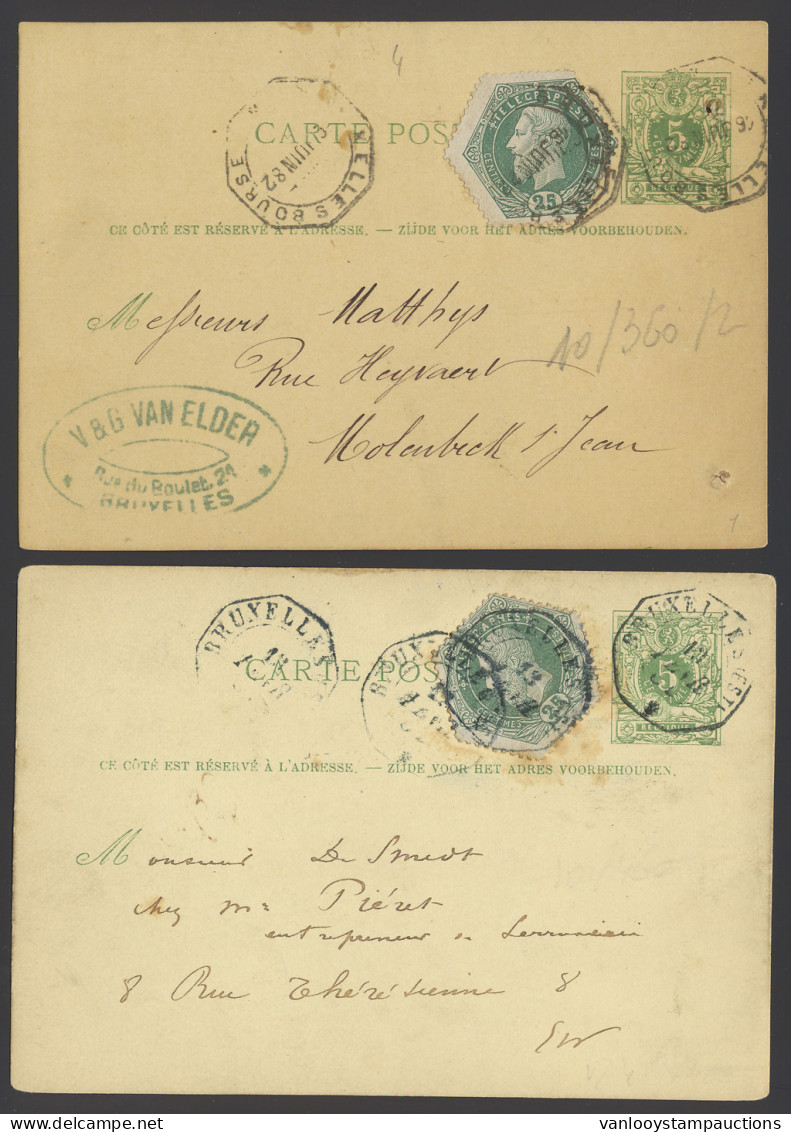 4
CARTE POS
XELLES BOURSE
JUIN 82
TELEGRAPHES
CENTIMES
25
5
BELGIQUE
CE CÔTÉ EST RÉSERVÉ À L'ADRESSE. — ZIJDE VOOR HET ADRES VOORBEHOUDEN.
Messieurs Matthys
Rue Heyvaert
10/360/2
Molenbeek St Jean
V & G VAN ELDER
Rue du Boulet. 24
BRUXELLES
1
BRUXELLES
BRUXELLES
BRUXELLES (EST)
CARTE POS
CENTIMES
25
5
BELGIQUE
CE CÔTÉ EST RÉSERVÉ À L'ADRESSE. — ZIJDE VOOR HET ADRES VOORBEHOUDEN.
Monsieur De Smedt
chez Mr Piéret
entrepreneur
8 Rue Thérésienne 8
EW
vanlooystampauctions